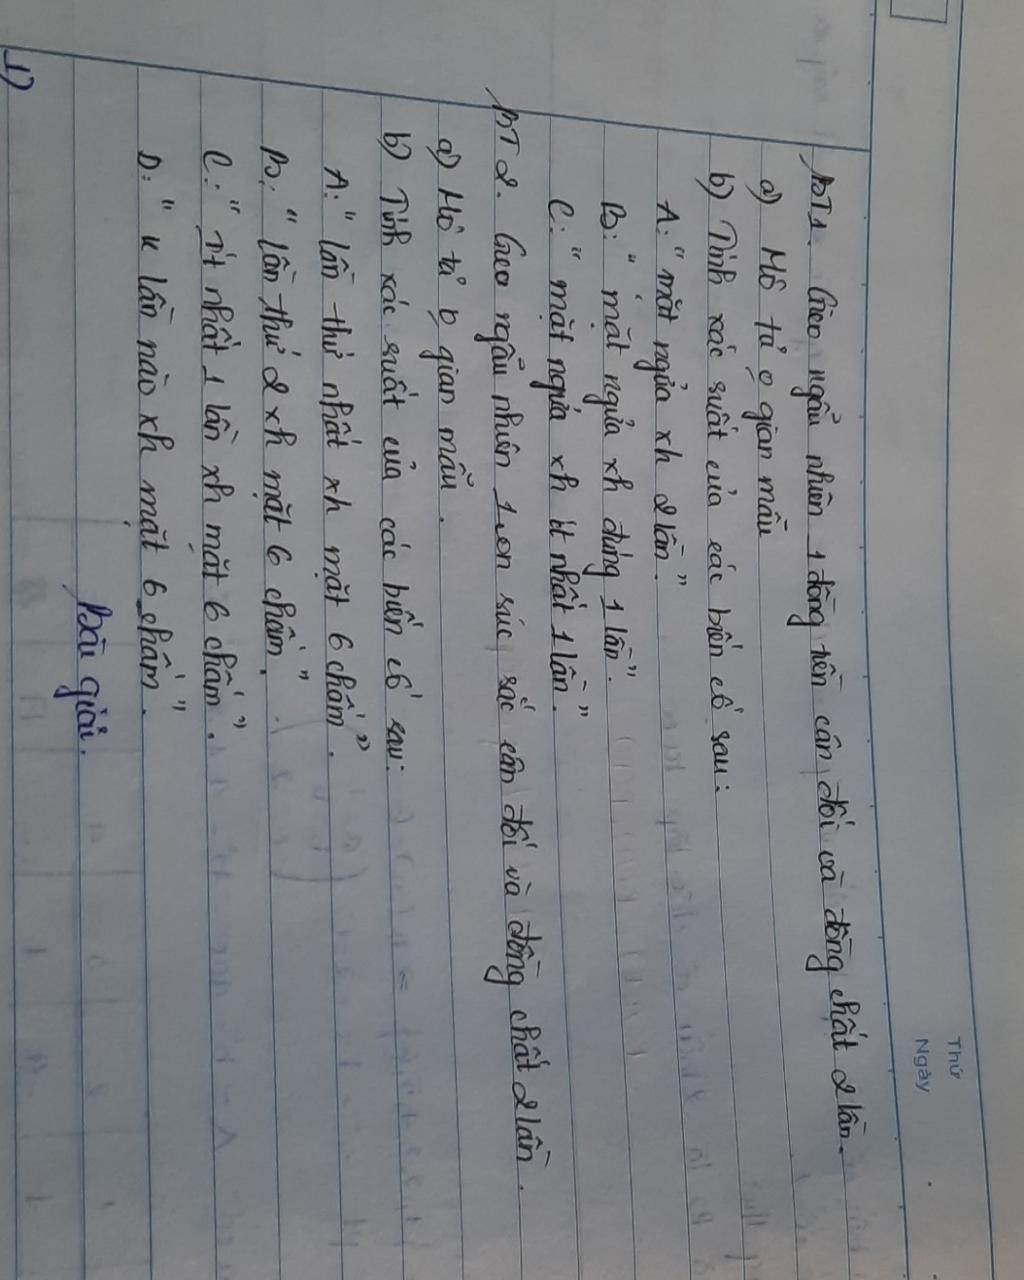 Thứ
Ngày
BT1. Gieo ngẫu nhiên 1 đồng tiền cân đối và đồng chất 2 lần.
a) Mô tả o gian mẫu
b) Tính xác suất của các biến cố sau:
A: "mặt ngửa xh 2 lần."
B: "mặt ngửa xh đúng 1 lần".
C: "mặt ngửa xh ít nhất 1 lần."
BT 2. Gieo ngẫu nhiên 1 con súc sắc cân đối và đồng chất 2 lần.
a) Mô tả gian mẫu.
b) Tính xác suất của các biến cố sau:
A: "lần thứ nhất xh mặt 6 chấm."
B: "lần thứ 2 xh mặt 6 chấm."
C: "ít nhất 1 lần xh mặt 6 chấm."
D: "K lần nào xh mặt 6 chấm."
Bài giải.
1)